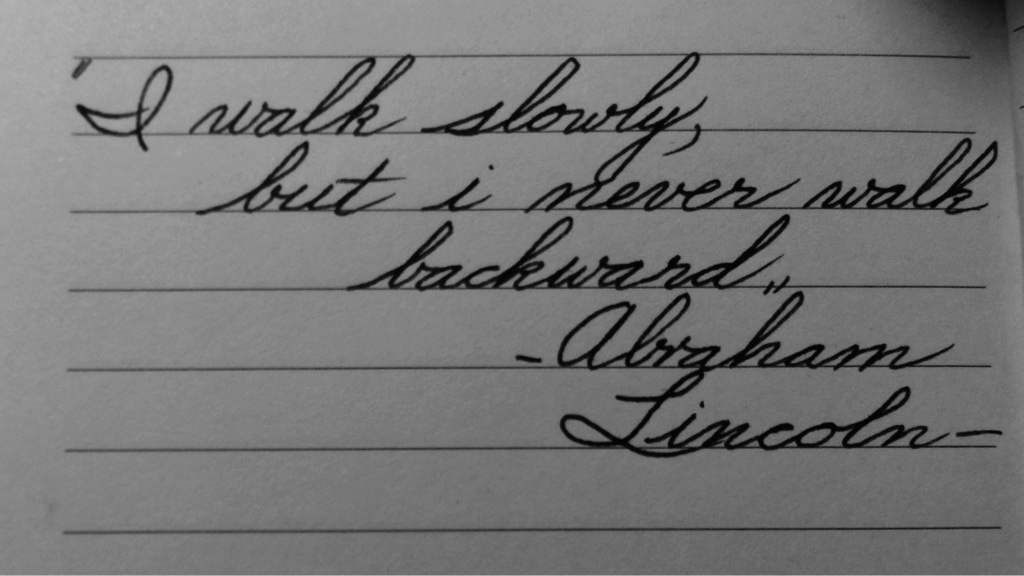 "I walk slowly,
but i never walk
backward„
-Abraham
Lincoln-